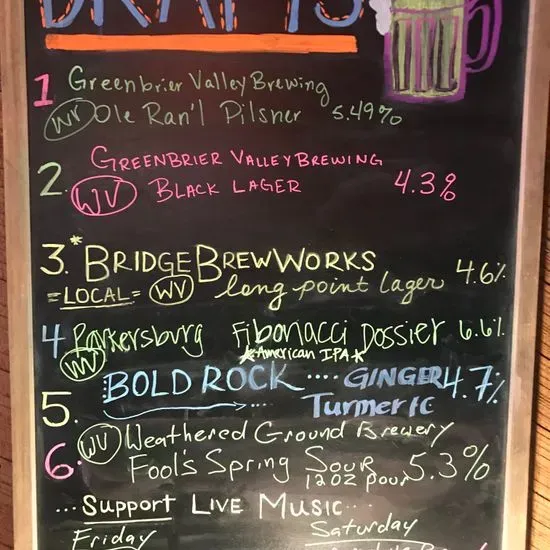 DRAFTS
1 Greenbrier Valley Brewing
WV Ole Ran'l Pilsner 5.49%
2. GREENBRIER VALLEY BREWING
WV BLACK LAGER 4.3%
3.* BRIDGE BREW WORKS
=LOCAL= WV long point lager 4.6%
4 Parkersburg Fibonacci Dossier 6.6%
WV *American IPA*
5. BOLD ROCK .... GINGER 4.7%
Turmeric
WV Weathered Ground Brewery
6. Fool's Spring Sour 5.3%
12oz pour
... Support LIVE Music ...
Friday Saturday